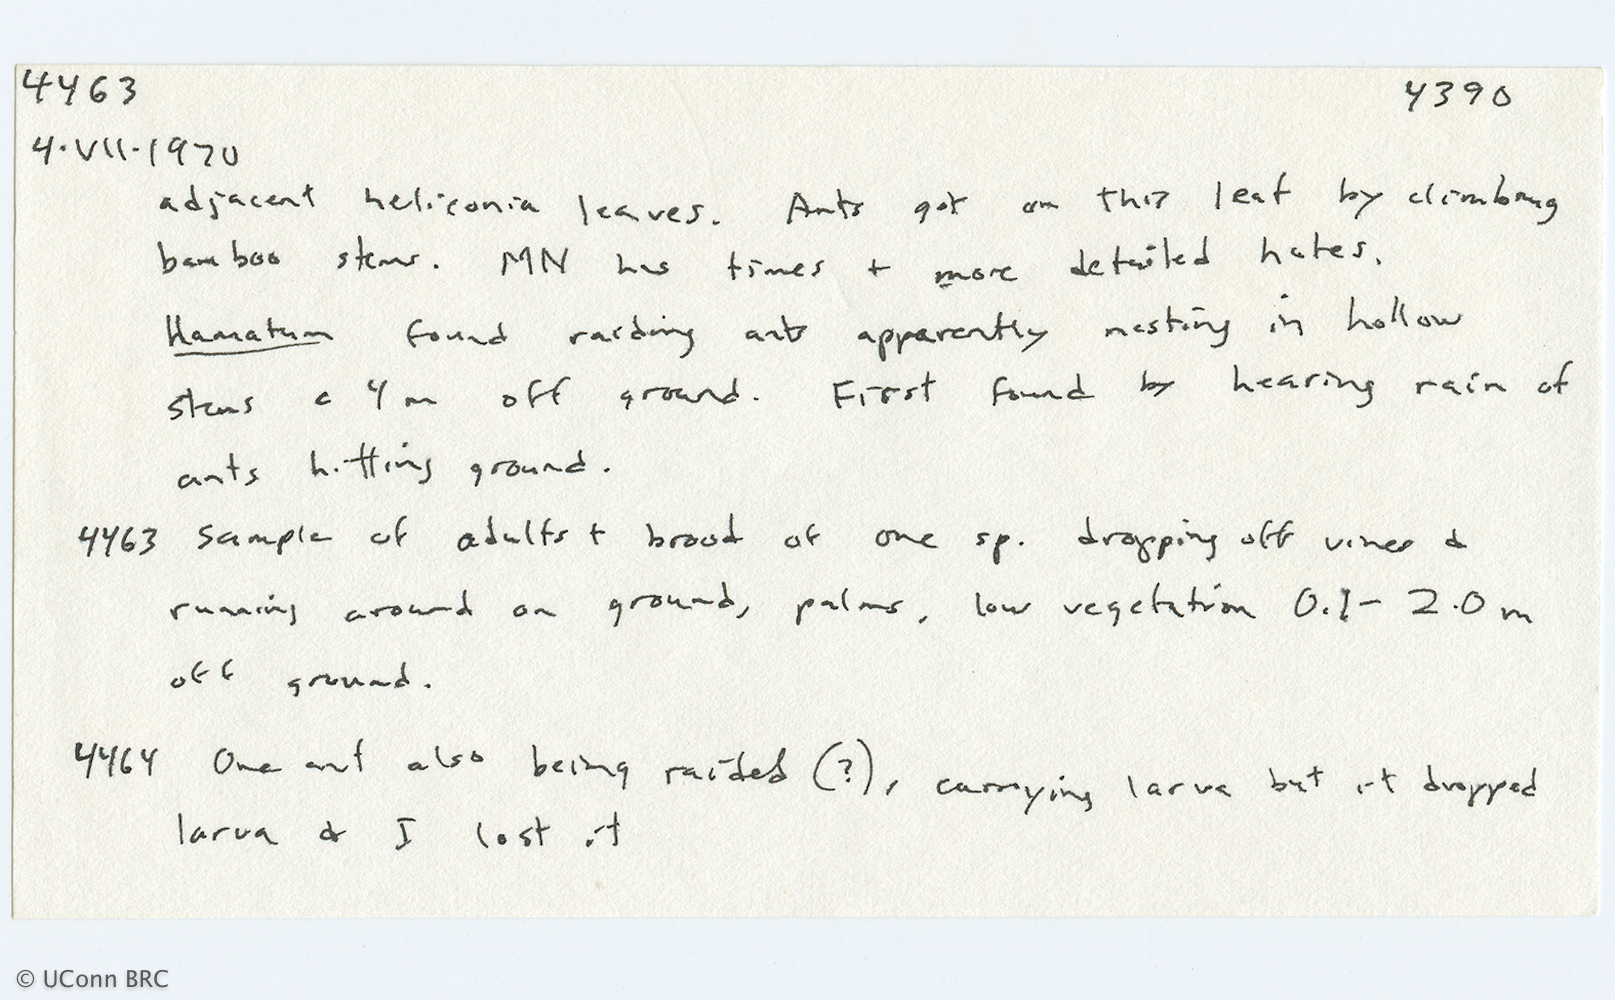 4463 4390
4·VII·1970
adjacent heliconia leaves. Ants got on this leaf by climbing
bamboo stems. MN has times + more detailed notes.
Hamatum found raiding ants apparently nesting in hollow
stems c 4 m off ground. First found by hearing rain of
ants hitting ground.
4463 Sample of adults + brood of one sp. dropping off vines &
running around on ground, palms, low vegetation 0.1- 2.0 m
off ground.
4464 One ant also being raided (?), carrying larva but it dropped
larva & I lost it
© UConn BRC